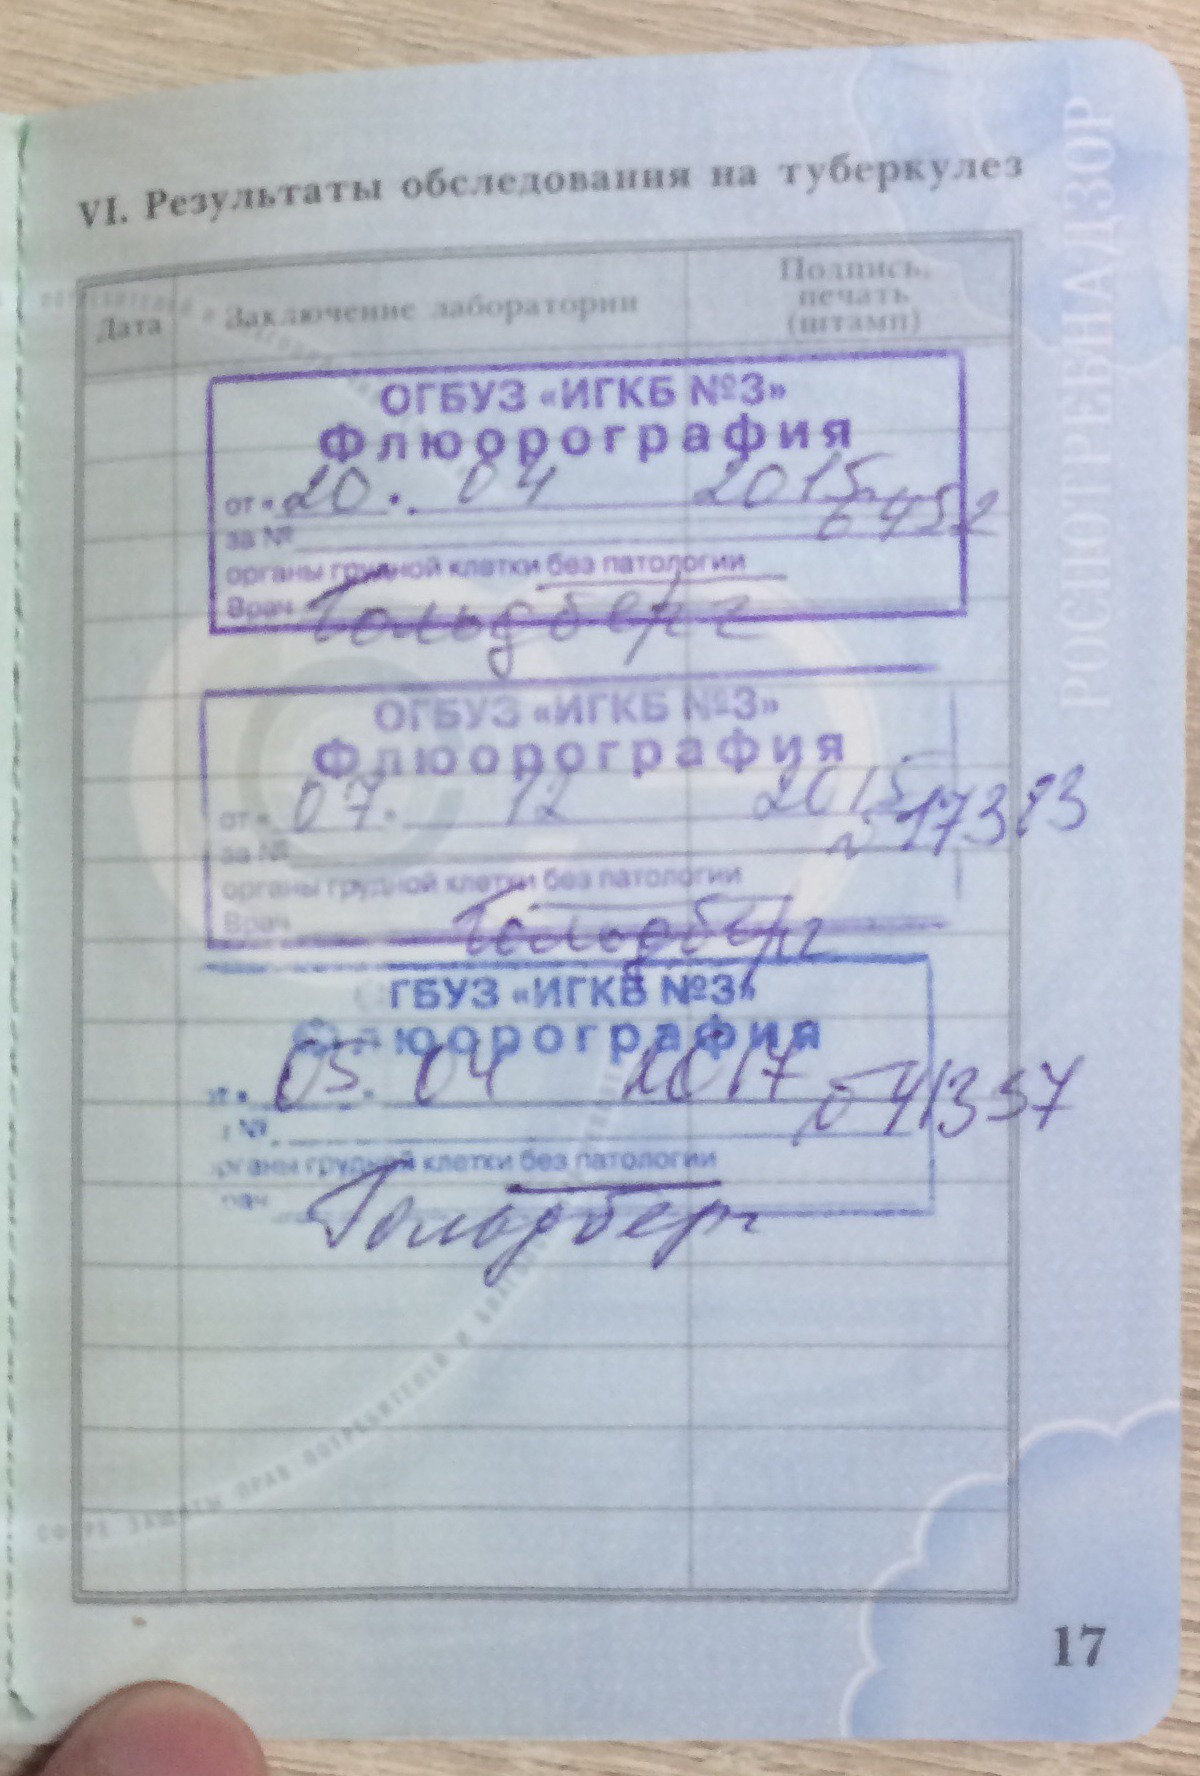 VI. Результаты обследования на туберкулез
Дата
Заключение лаборатории
Подпись,
печать
(штамп)
ОГБУЗ «ИГКБ №3»
Флюорография
от «20» 04 2015
за № 6452
органы грудной клетки без патологии
Врач Гольдберг
ОГБУЗ «ИГКБ №3»
Флюорография
от «07» 12 2015
№ 17383
за №
органы грудной клетки без патологии
Врач Гольдберг
ГБУЗ «ИГКБ №3»
Флюорография
от «05» 04 2017
№ 041357
органы грудной клетки без патологии
рач Гольдберг
РОСПОТРЕБНАДЗОР
СФЕРЕ ЗАЩИТЫ ПРАВ ПОТРЕБИТЕЛЕЙ И
17